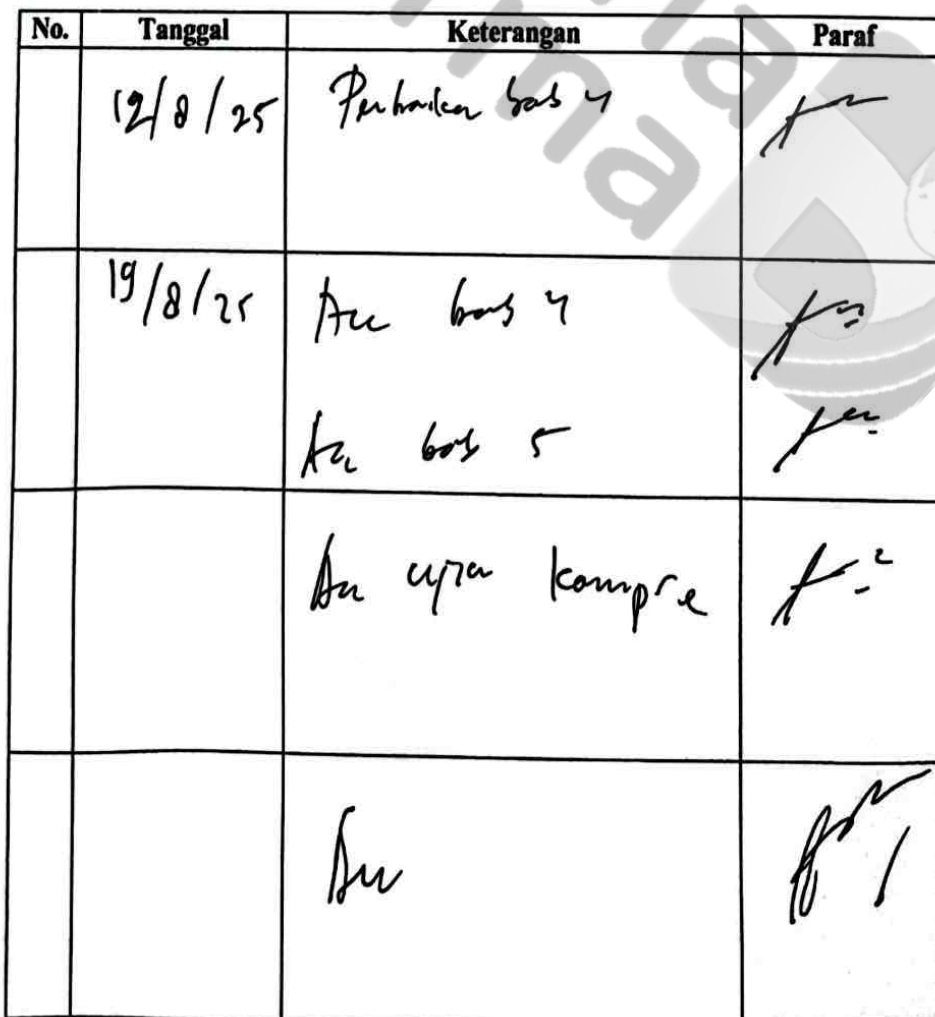 No. Tanggal Keterangan Paraf
12/8/25 Perbaikan bab 4
19/8/25 Acc bab 4
Acc bab 5
Acc ujian kompre
Acc